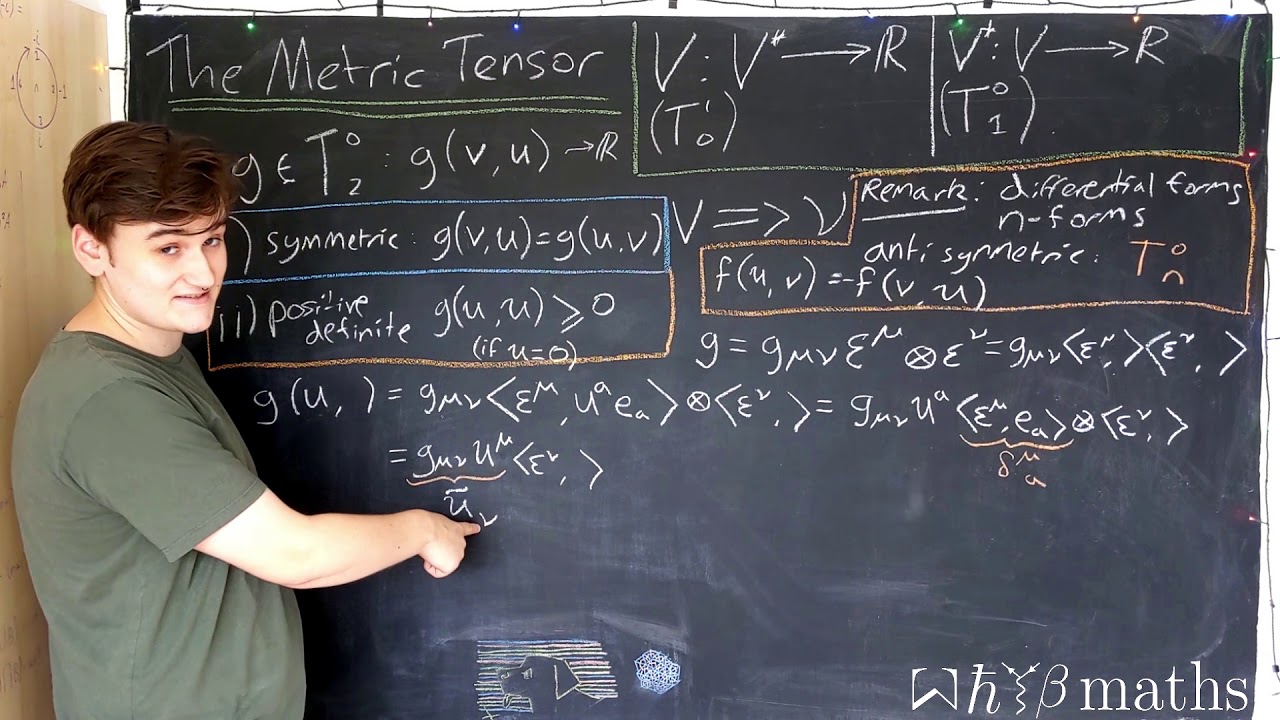 The Metric Tensor
V : V* → ℝ
(T¹₀)
V* : V → ℝ
(T⁰₁)
g ∈ T⁰₂ : g(v,u) → ℝ
) symmetric: g(v,u)=g(u,v)
ii) positive definite g(u,u) ⩾ 0
(if u=0)
V => ν
Remark: differential forms
n-forms
antisymmetric: T⁰ₙ
f(u,v)=-f(v,u)
g = g_μν ε^μ ⊗ ε^ν = g_μν⟨ε^μ, ⟩⟨ε^ν, ⟩
g(u, ) = g_μν⟨ε^μ, u^a e_a⟩ ⊗ ⟨ε^ν, ⟩ = g_μν u^a ⟨ε^μ, e_a⟩ ⊗ ⟨ε^ν, ⟩
δ^μ_a
= g_μν u^μ ⟨ε^ν, ⟩
ū_ν
maths